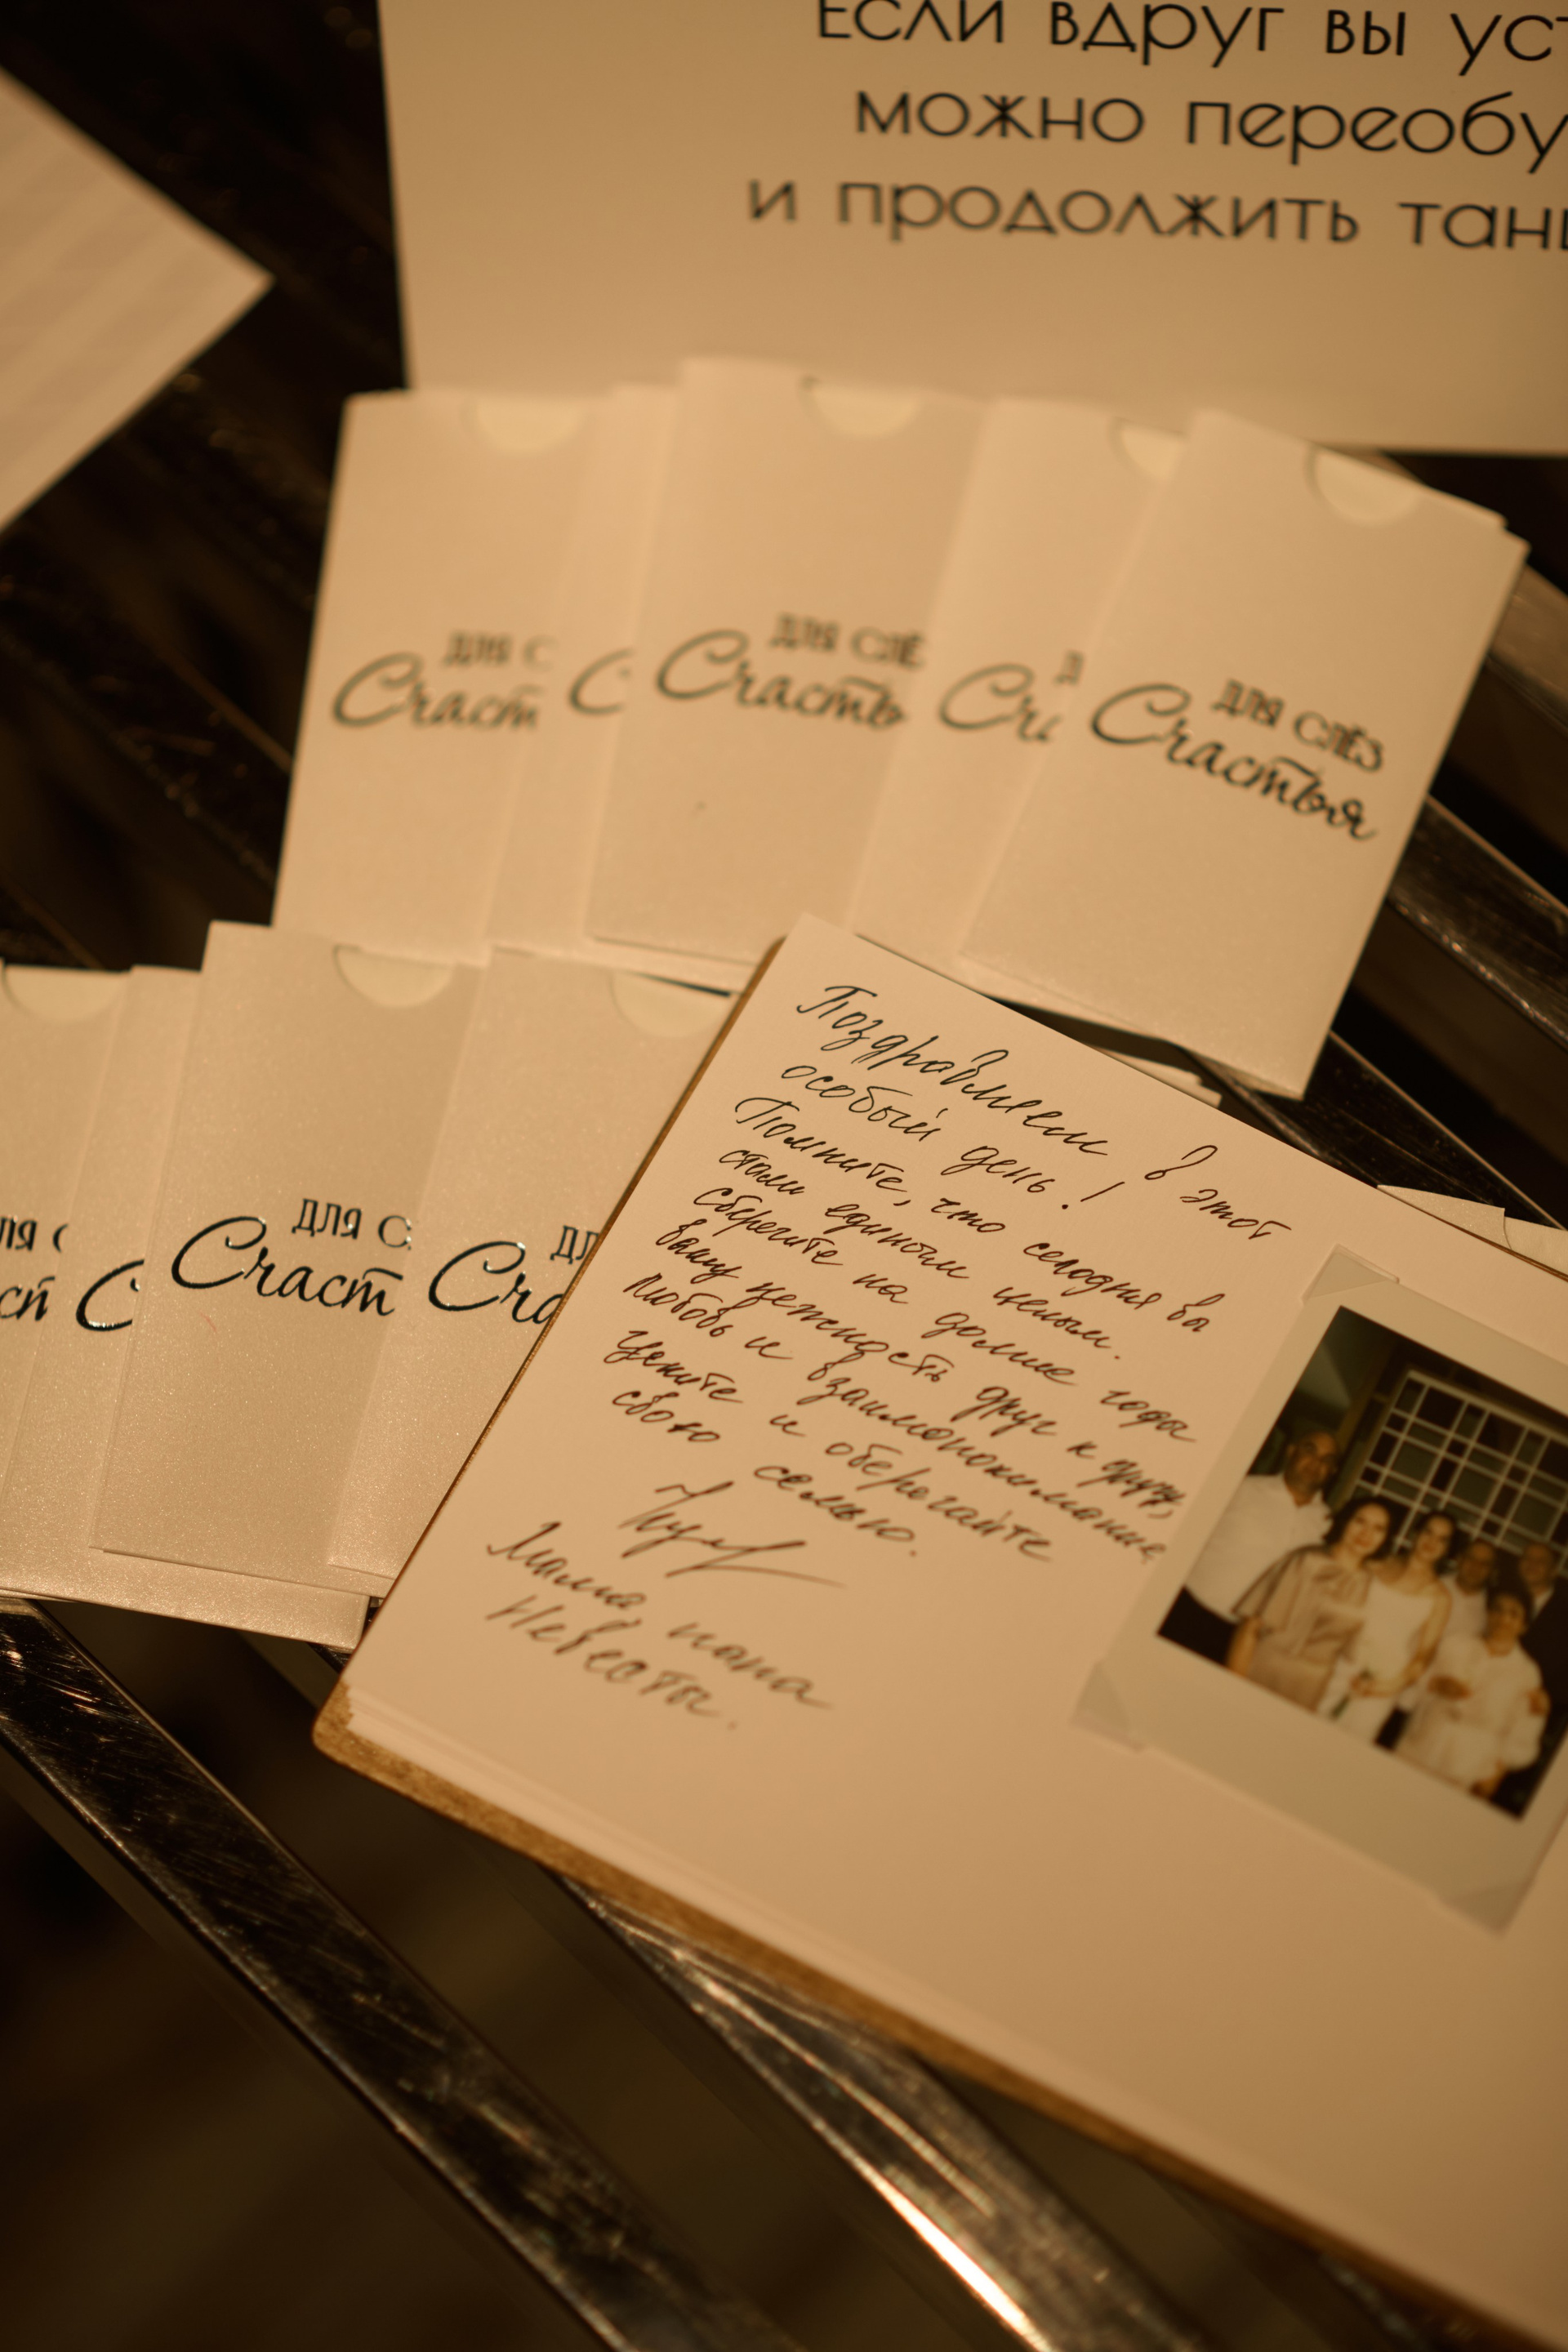 Если вдруг вы уст
можно переобу
и продолжить танц
для с
Счаст
С
для слё
Счасть
д
Сча
для слёз
Счастья
ля с
сч
С
для с
Счаст
дл
Сча
Поздравляем в этот
особый день!
Помните, что сегодня вы
стали единым целым.
Сберегите на долгие года
вашу нежность друг к другу,
Любовь и взаимопонимание,
Цените и оберегайте
свою семью.
Мама, папа
Невесты.